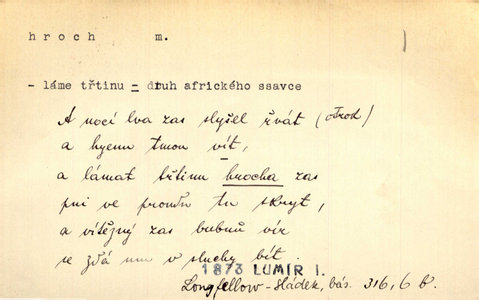 hroch m.
- láme třtinu - druh afrického ssavce
A nocí lva zas slyšel řvát (otrok)
a hyenu tmou výt,
a lámat třtinu hrocha zas
pni ve proudu tu skryt,
a vítězný zas bubnů vír
se zdá mu v sluchy bít.
1873 LUMÍR I.
Longfellow - Sládek, bás. 316, 6 b.